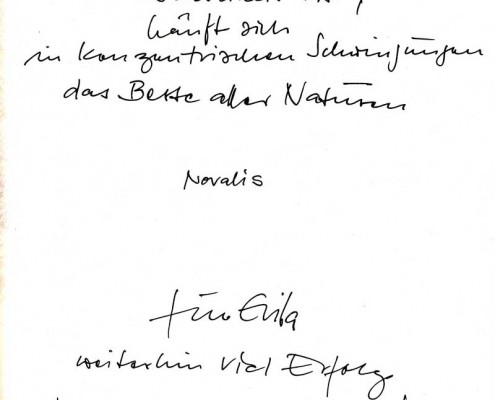 häuft sich
in konzentrischen Schwingungen
das Beste aller Naturen
Novalis
für
weiterhin viel Erfolg